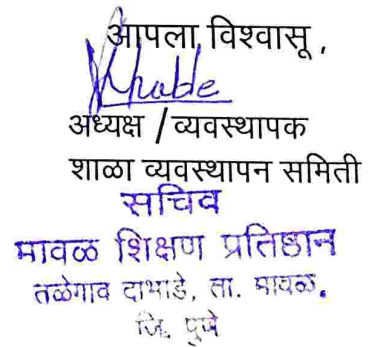 आपला विश्वासू ,
अध्यक्ष /व्यवस्थापक
शाळा व्यवस्थापन समिती
सचिव
मावळ शिक्षण प्रतिष्ठान
तळेगाव दाभाडे, ता. मावळ.
जि. पुणे